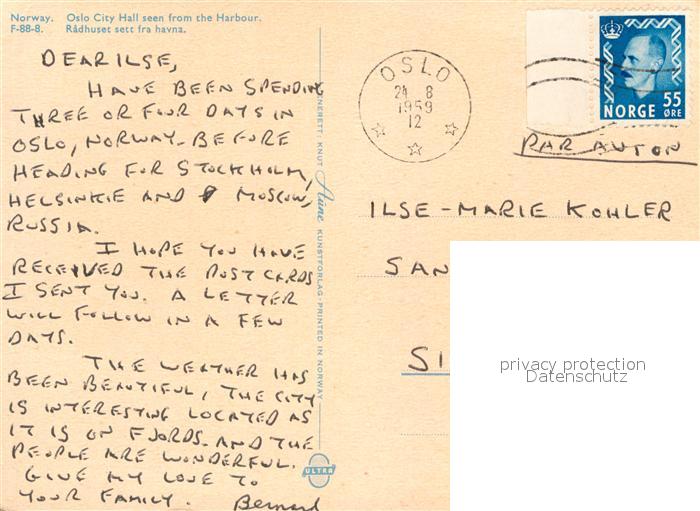 Norway. Oslo City Hall seen from the Harbour.
F-88-8. Rådhuset sett fra havna.
DEAR ILSE,
HAVE BEEN SPENDING
THREE OR FOUR DAYS IN
OSLO, NORWAY- BEFORE
HEADING FOR STOCKHOLM,
HELSINKIE AND MOSCOW,
RUSSIA.
I HOPE YOU HAVE
RECEIVED THE POST CARDS
I SENT YOU. A LETTER
WILL FOLLOW IN A FEW
DAYS.
THE WEATHER HAS
BEEN BEAUTIFUL, THE CITY
IS INTERESTING LOCATED AS
IT IS ON FJORDS. AND THE
PEOPLE ARE WONDERFUL.
GIVE MY LOVE TO
YOUR FAMILY.
Bernard
ENERETT: KNUT Aune KUNSTFORLAG - PRINTED IN NORWAY
ULTRA
OSLO
21 8
1959
12
NORGE 55
ØRE
PAR AVION
ILSE-MARIE KOHLER
SAN
SI
privacy protection
Datenschutz